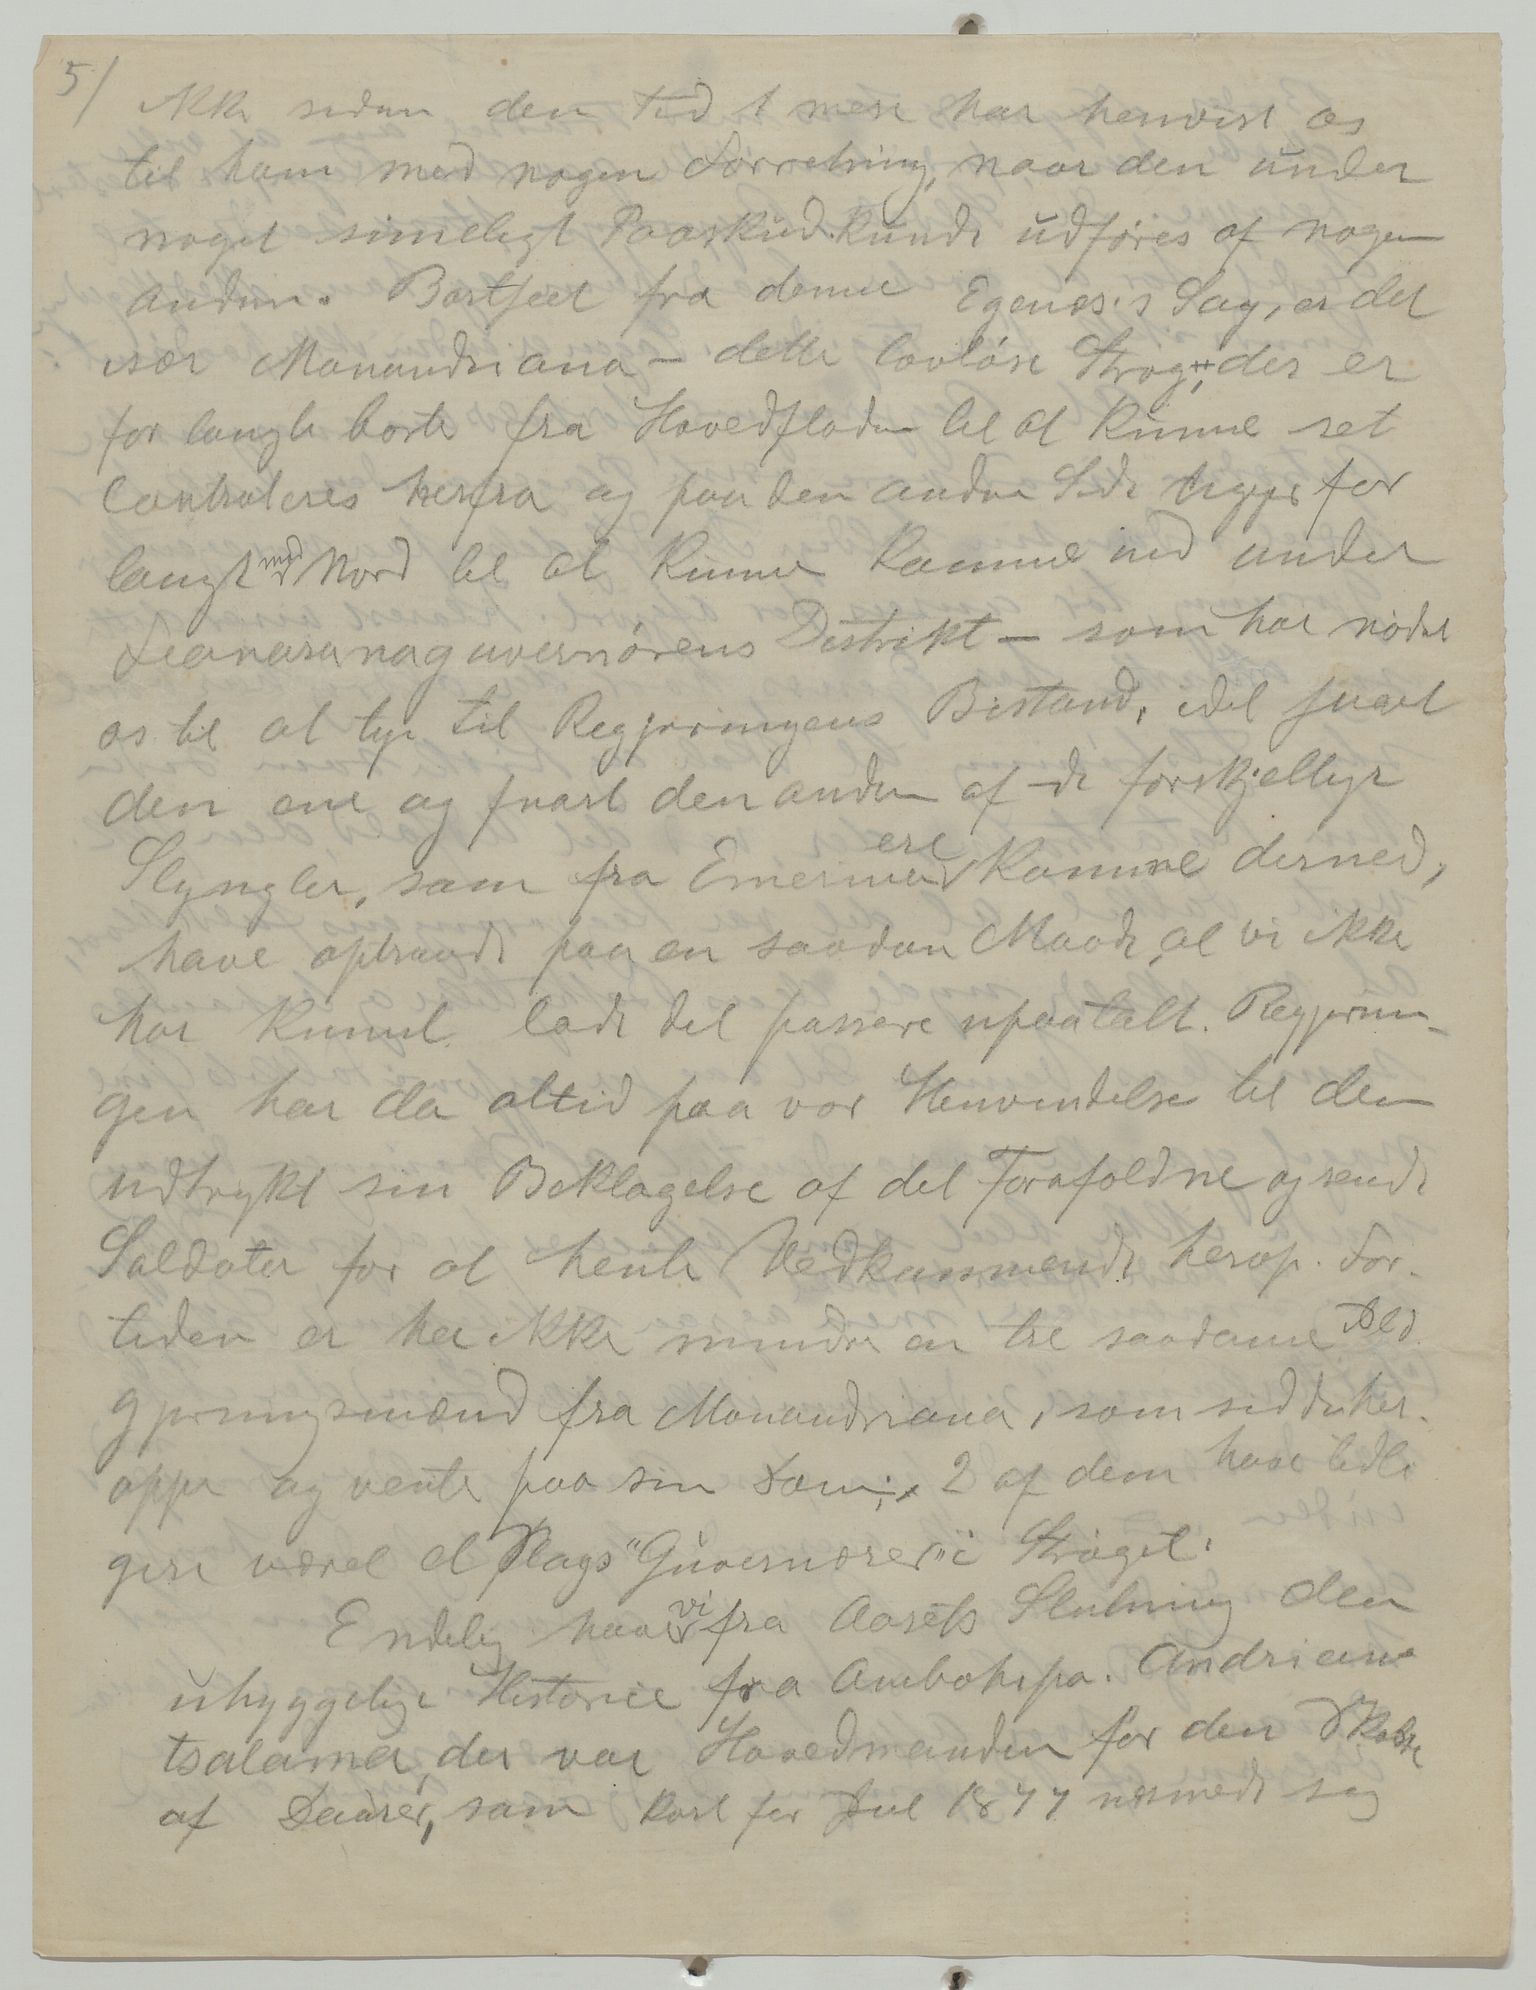 5/
ikke siden den Tid t mere har henvist os
til ham med nogen Forretning, naar den under
noget rimeligt Paaskud kunde udføres af nogen
anden. Bortseet fra denne Egenæs's Sag, er det
især Manandriana – dette lovløse Strøg, der er
for langt borte fra Hovedstaden til at kunne ret
controleres herfra og paa den anden Side ligger for
langt mod Nord til at kunne komme ind under
Fianarsuvnaguvernørens Distrikt – som har nødet
os til at tye til Regjeringens Bistand, idet snart
den ene og snart den anden af de forskjellige
Slyngler, som fra Emerina ere komne derned,
have optraadt paa en saadan Maade, at vi ikke
har kunnet lade det passere upaatalt. Regjerin-
gen har da altid paa vor Henvendelse til den
udtrykt sin Beklagelse af det Forefaldne og sendt
Soldater for at hente Vedkommende herop. For
tiden er her ikke mindre en tre saadanne
gjerningsmænd fra Manandriana, som sidde her-
oppe og vente paa sin Dom; 2 af dem have tidli
gere været et Slags "Guvernører" i Strøget.
Endelig have vi fra Aarets Slutning den
uhyggelige Historie fra Ambohipo. Andriam
tsalama, der var Hovedmanden for den Skole
af Daarer, som kort før Jul 1877 nærmede sig